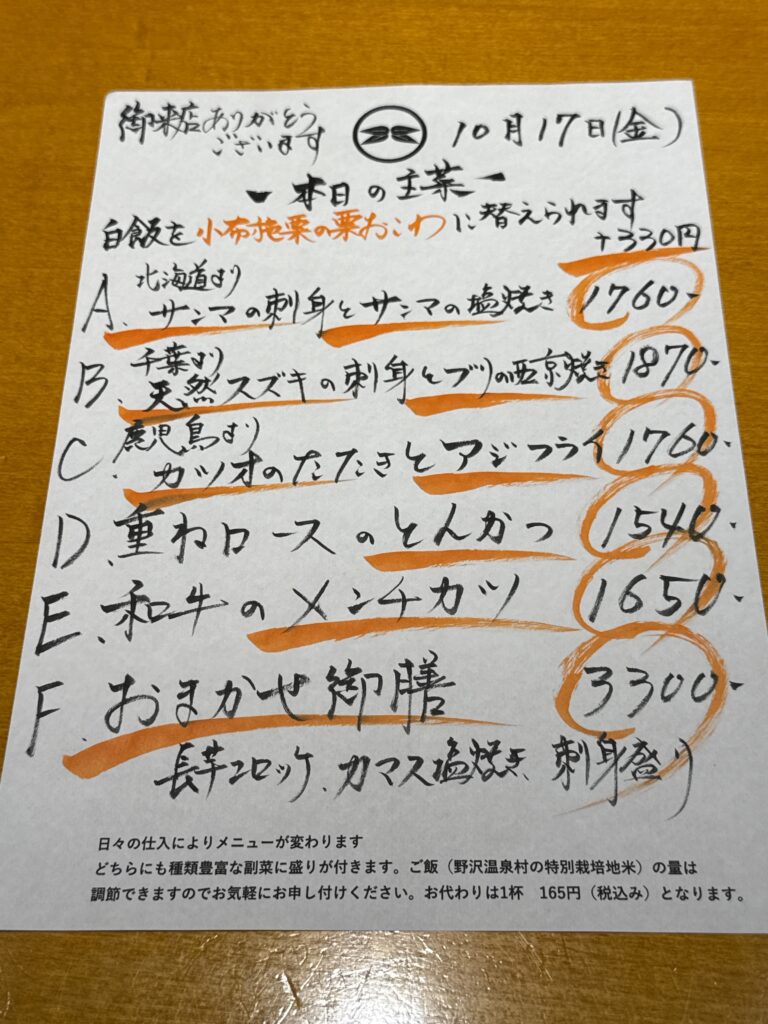 御来店ありがとう
ございます
10月17日(金)
本日の主菜
白飯を小布施栗の栗おこわに替えられます
+330円
北海道より
A、サンマの刺身とサンマの塩焼き 1760-
千葉より
B、天然スズキの刺身とブリの西京焼き 1870-
鹿児島より
C、カツオのたたきとアジフライ 1760-
D、重ねロースのとんかつ 1540-
E、和牛のメンチカツ 1650-
F、おまかせ御膳 3300-
長芋コロッケ、カマス塩焼き、刺身盛り
日々の仕入によりメニューが変わります
どちらにも種類豊富な副菜に盛りが付きます。ご飯（野沢温泉村の特別栽培地米）の量は
調節できますのでお気軽にお申し付けください。お代わりは1杯　165円（税込み）となります。